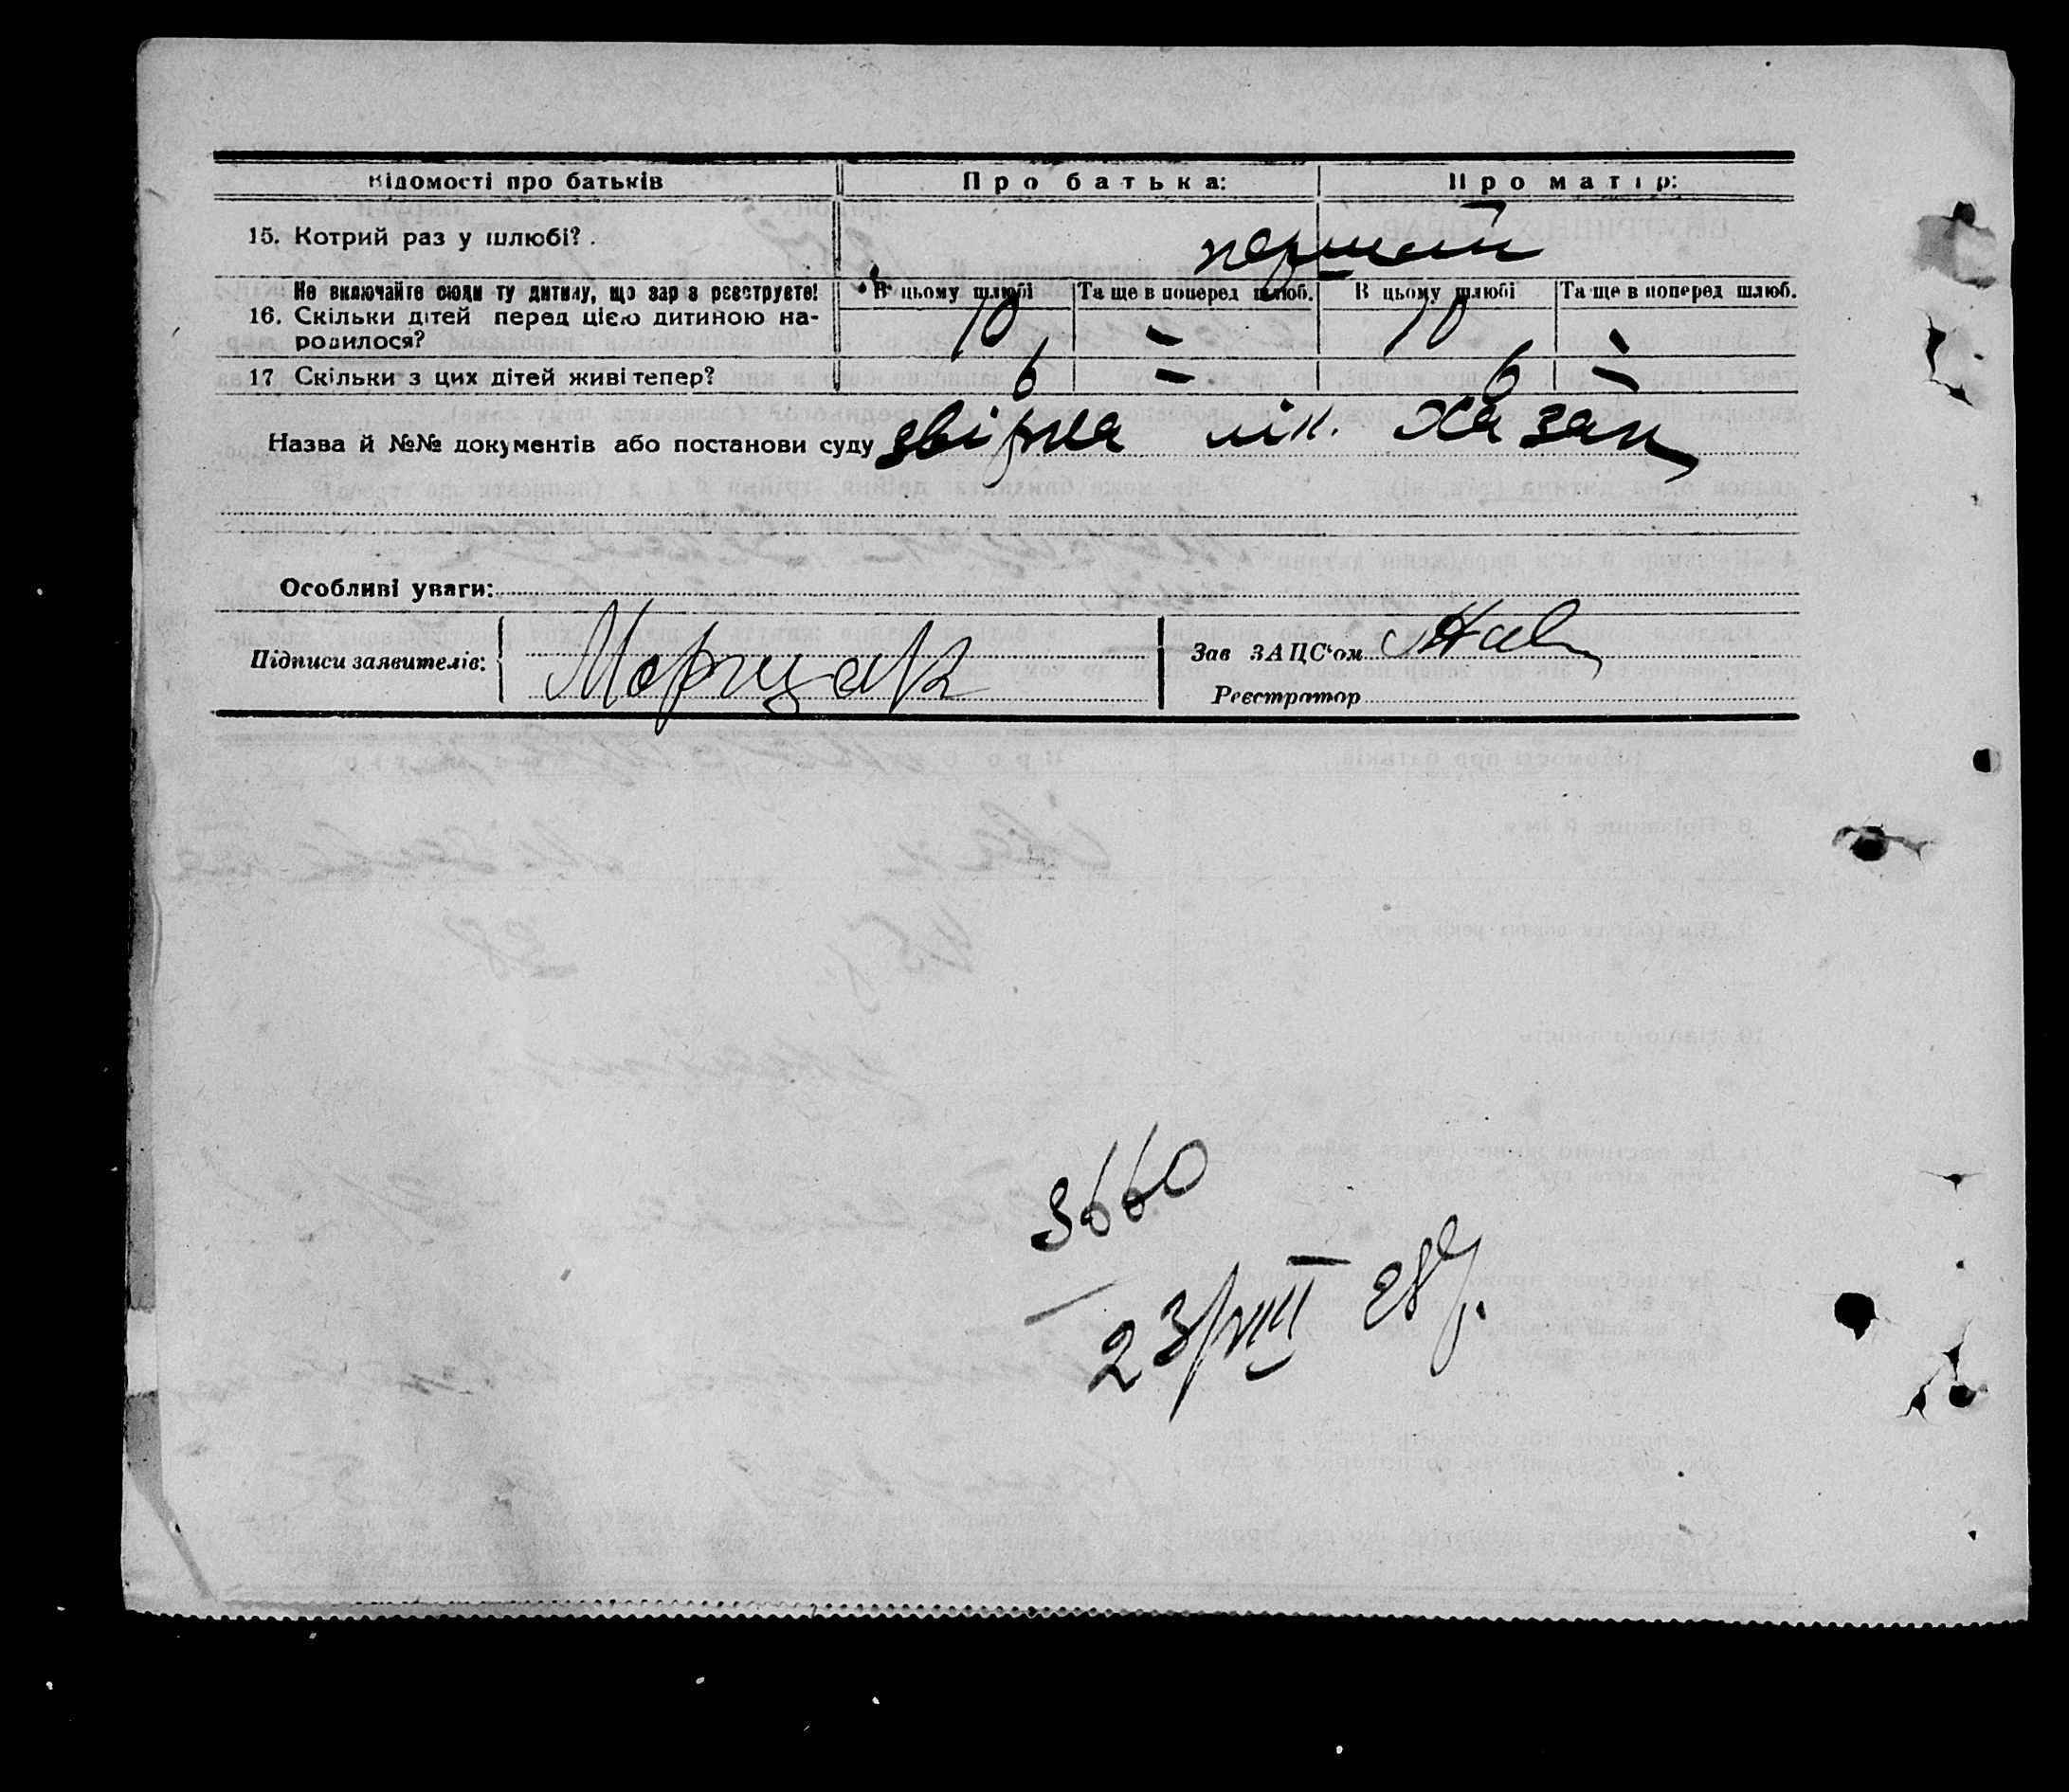 Відомості про батьків Про батька: Про матір:
15. Котрий раз у шлюбі? . перший
Не включайте сюди ту дитину, що зараз реєструєте! В цьому шлюбі Та ще в поперед шлюб. В цьому шлюбі Та ще в поперед шлюб.
16. Скільки дітей перед цією дитиною на- 10 – 10 –
родилося?
17 Скільки з цих дітей живі тепер? 6 – 6 –
Назва й №№ документів або постанови суду звірка лік. Хазан
Особливі уваги:
Підписи заявителів: Зав ЗАЦС‘ом
Реєстратор
3660
23/VIII 28 р.